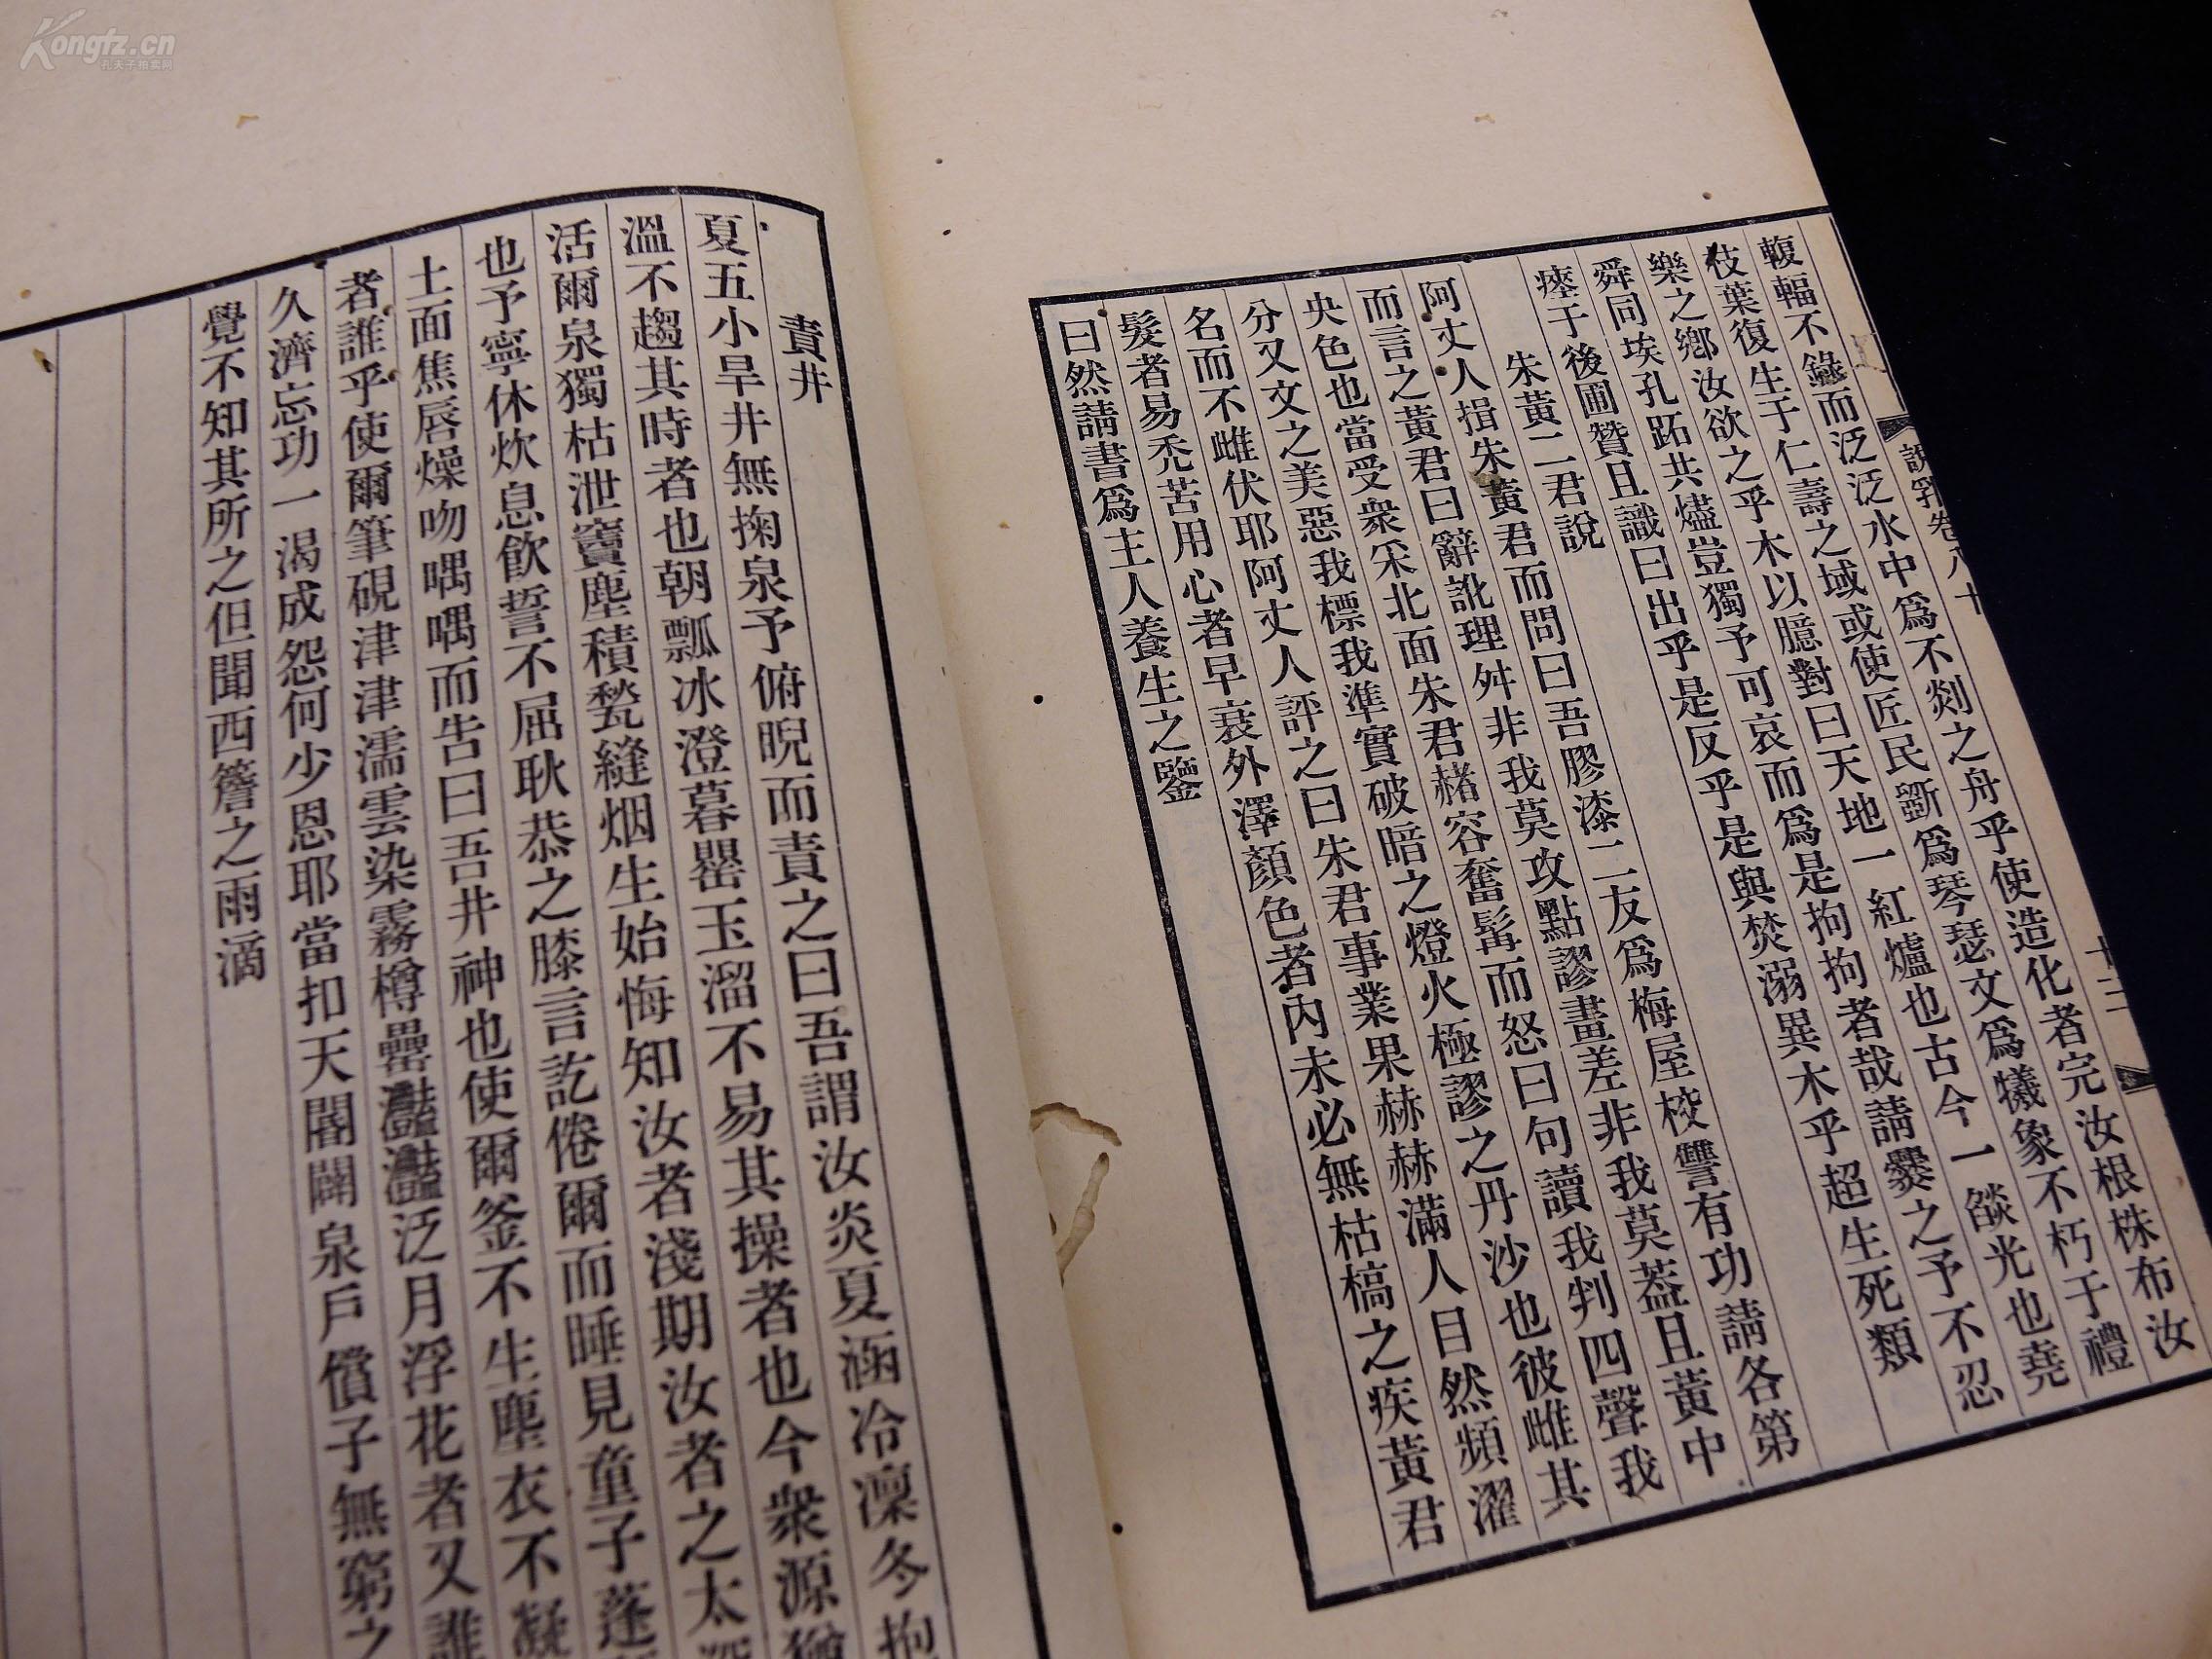 Kongfz.cn
孔夫子拍卖网
說郛卷八十
十二
輹輻不錄而泛泛水中爲不剡之舟乎使造化者完汝根株布汝
枝葉復生于仁壽之域或使匠民斵爲琴瑟文爲犧象不朽于禮
樂之鄉汝欲之乎木以臆對曰天地一紅爐也古今一燄光也堯
舜同埃孔跖共燼豈獨予可哀而爲是拘拘者哉請爨之予不忍
瘞于後圃贊且識曰出乎是反乎是與焚溺異木乎超生死類
朱黃二君說
阿丈人揖朱黃君而問曰吾膠漆二友爲梅屋校讐有功請各第
而言之黃君曰辭訛理舛非我莫攻點謬畫差非我莫葢且黃中
央色也當受衆采北面朱君赭容奮髯而怒曰句讀我判四聲我
分又文之美惡我標我準實破暗之燈火極謬之丹沙也彼雌其
名而不雌伏耶阿丈人評之曰朱君事業果赫赫滿人目然頻濯
髮者易禿苦用心者早衰外澤顏色者內未必無枯槁之疾黃君
曰然請書爲主人養生之鑒
責井
夏五小旱井無掬泉予俯睨而責之曰吾謂汝炎夏涵冷凜冬抱
溫不趨其時者也朝瓢冰澄暮罌玉溜不易其操者也今衆源猶
活爾泉獨枯泄竇塵積甃縫烟生始悔知汝者淺期汝者之太深
也予寧休炊息飲誓不屈耿恭之膝言訖倦爾而睡見童子蓬
土面焦唇燥吻喁喁而告曰吾井神也使爾釜不生塵衣不凝
者誰乎使爾筆硯津津濡雲染霧樽罍灩灩泛月浮花者又誰
久濟忘功一渴成怨何少恩耶當扣天閽闢泉戶償子無窮之
覺不知其所之但聞西簷之雨滴